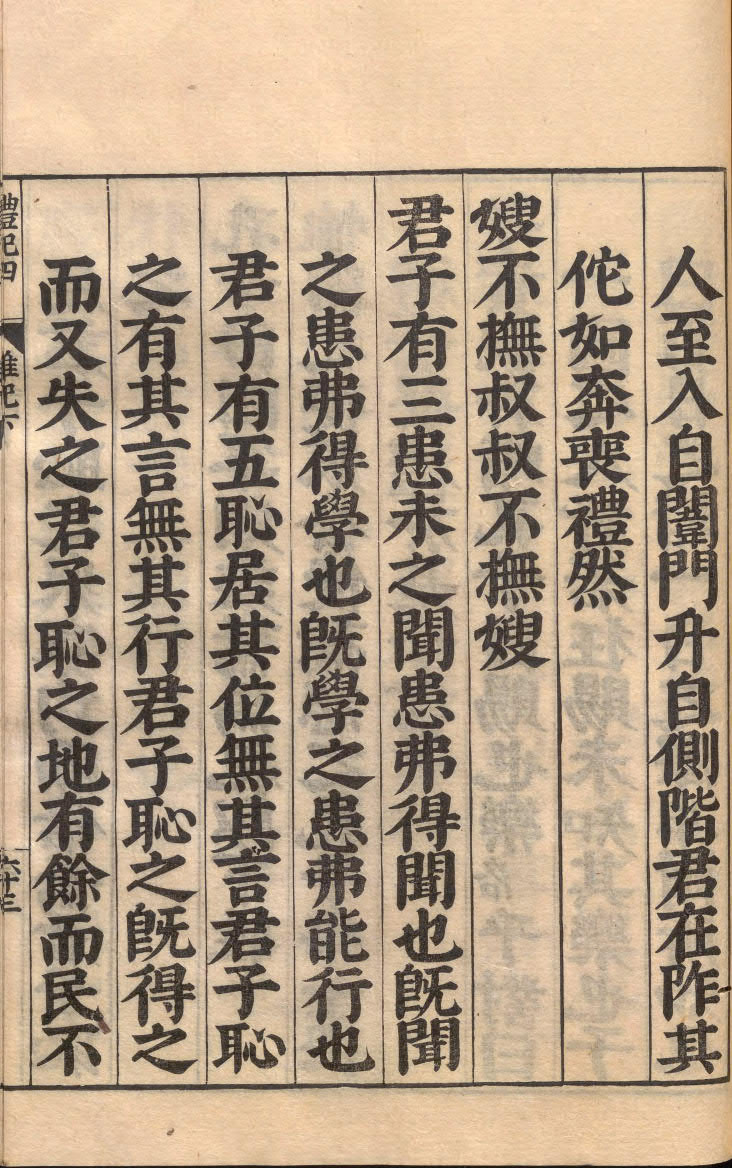 人至入自闈門升自側階君在阼其
佗如奔喪禮然
嫂不撫叔叔不撫嫂
君子有三患未之聞患弗得聞也旣聞
之患弗得學也旣學之患弗能行也
君子有五恥居其位無其言君子恥
之有其言無其行君子恥之旣得之
而又失之君子恥之地有餘而民不
禮記四
雜記下
六十三